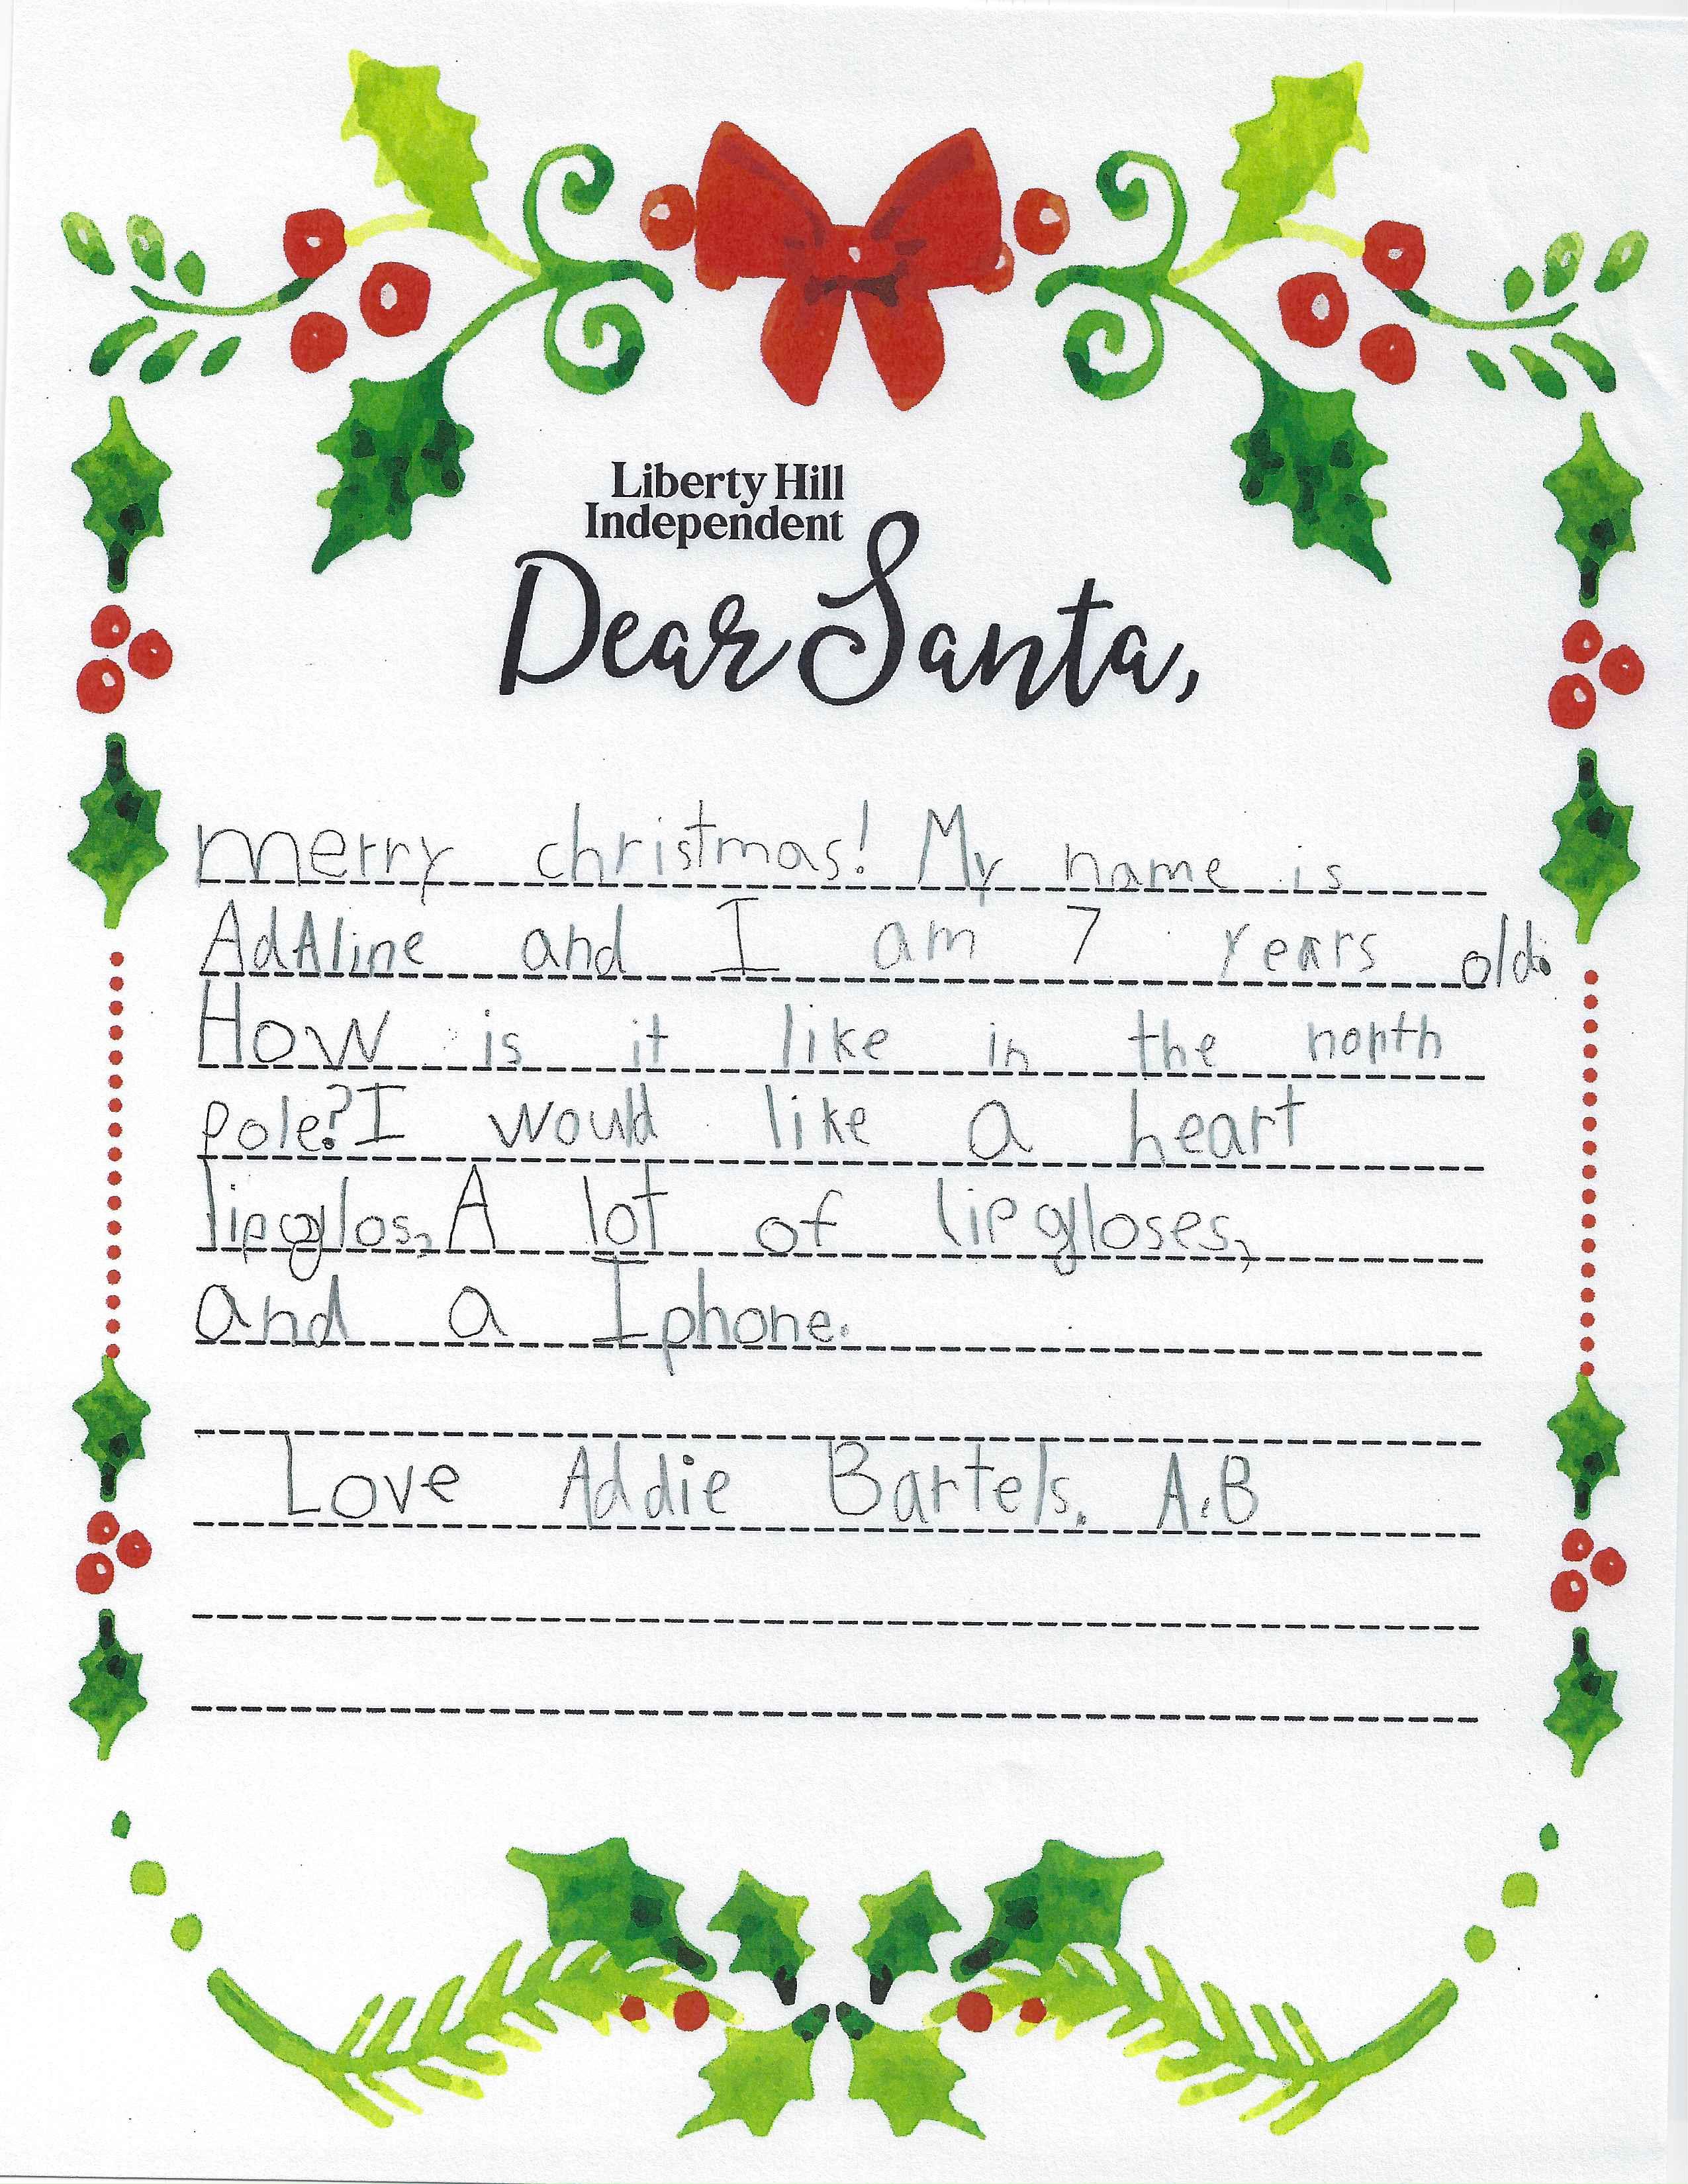 Liberty Hill
Independent
Dear Santa,
merry christmas! My name is
AdAline and I am 7 years old.
How is it like in the north
pole? I would like a heart
lipglos, A lot of lipgloses,
and a Iphone.
Love Addie Bartels. A.B